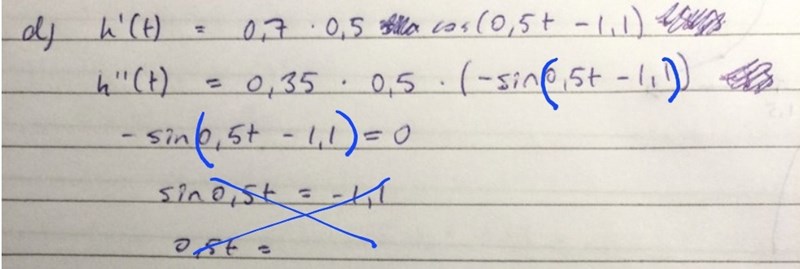 d) h'(t) = 0,7 · 0,5 cos(0,5t - 1,1)
h''(t) = 0,35 · 0,5 · (-sin(0,5t - 1,1))
- sin(0,5t - 1,1) = 0
sin 0,5t = -1,1
0,5t =